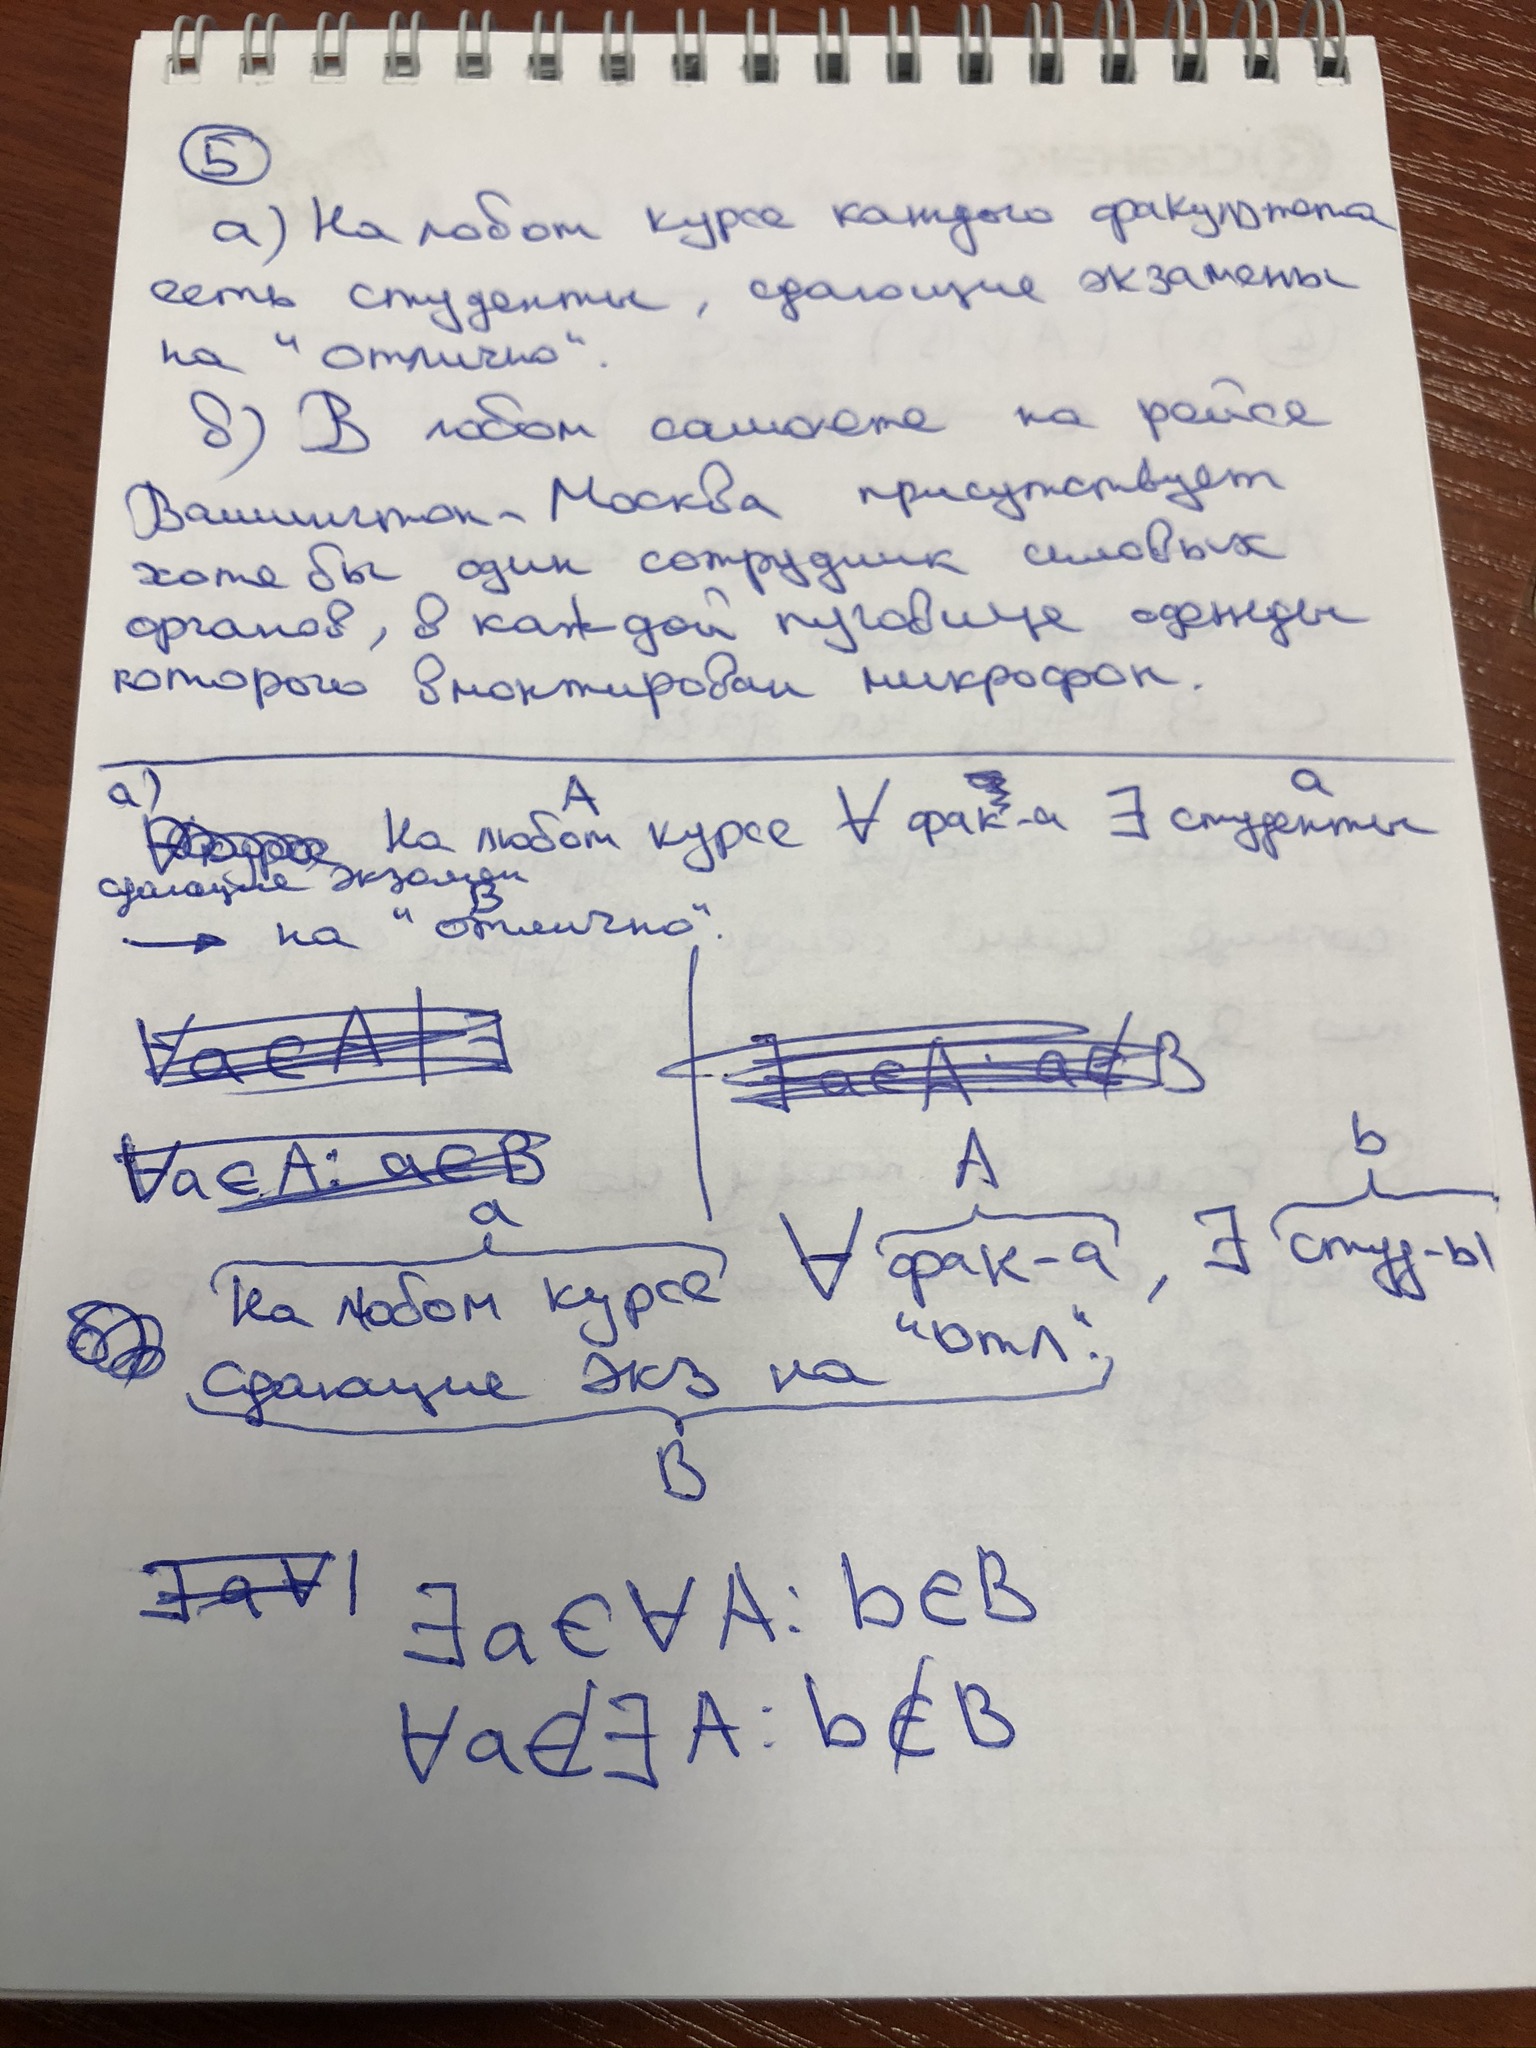 5
а) На любом курсе каждого факультета
есть студенты, сдающие экзамены
на "отлично".
б) В любом самолете на рейсе
Вашингтон-Москва присутствует
хотя бы один сотрудник силовых
органов, в каждой пуговице одежды
которого вмонтирован микрофон.
а)
A a
На любом курсе ∀ фак-а ∃ студенты
сдающие экзамен
B
→ на "отлично".
∀a∈A | ∃
∃a∈A: a∉B
∀a∈A: a∈B
a A b
На любом курсе ∀ фак-а, ∃ студ-ы
сдающие экз на "отл".
B
∃a∀|
∃a∈∀A: b∈B
∀a∉∃A: b∉B